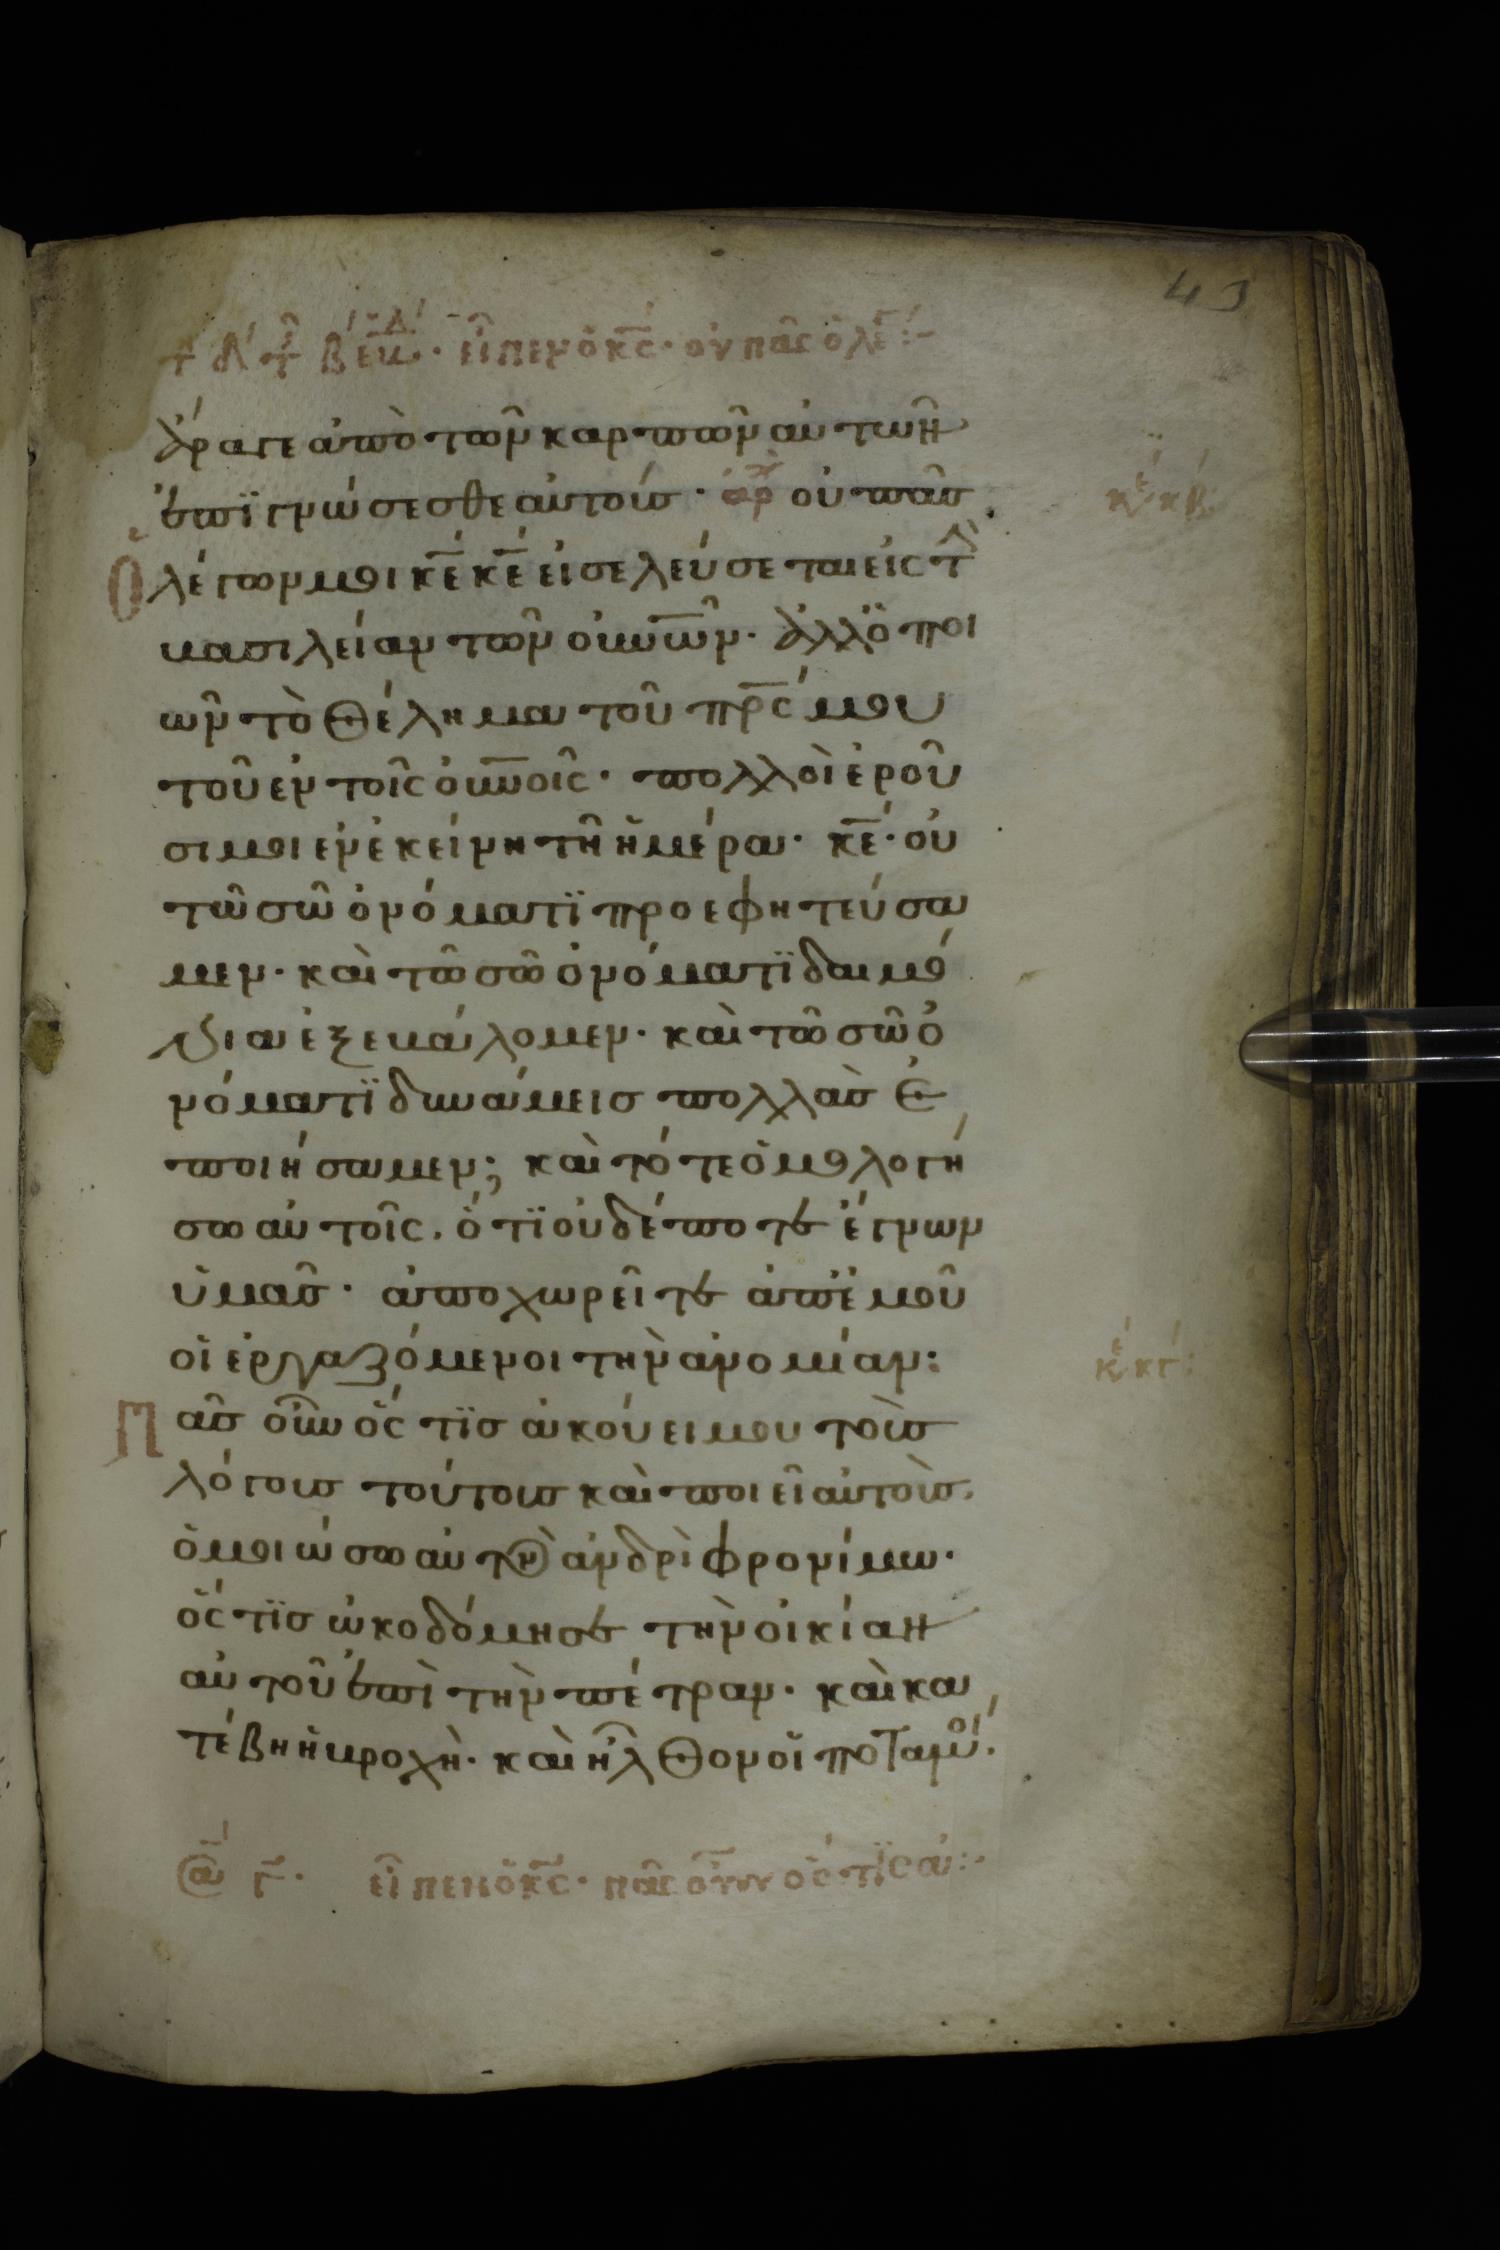 43
τῇ δ τῆς β ἑβδ. εἶπεν ὁ κς. οὐ πᾶς ὁ λέγ
ἄραγε ἀπὸ τῶν καρπῶν αὐτῶν
ἐπϊγνώσεσθε αὐτούσ· ἀρχ οὐ πᾶσ
ὁ λέγων μοι κε κε εἰσελεύσεται εἰς τὴν
βασιλείαν τῶν οὐνῶν· ἀλλ ὁ ποι
ῶν τὸ θέλημα τοῦ πρς μου
τοῦ ἐν τοῖς οὐνοῖς· πολλοὶ ἐροῦ
σι μοι ἐν ἐκείνη τῆ ἡμέρα· κε· οὐ
τῶ σῶ ὀνόματϊ προεφητεύσα
μεν· καὶ τῶ σῶ ὀνόματϊ δαιμό
νια ἐξεβάλομεν· καὶ τῶ σῶ ὀ
νόματϊ δυνάμεισ πολλὰσ ἐ
ποιήσαμεν; καὶ τότε ὁμολογή
σω αὐτοῖς. ὅτϊ οὐδέποτε ἔγνων
ὑμᾶσ· ἀποχωρεῖτε ἀπ ἐμοῦ
οἱ ἐργαζόμενοι τὴν ἀνομίαν:
κε κβ
κε κγ:
Πᾶσ οὖν ὅς τϊσ ἀκούει μου τοὺσ
λόγουσ τούτουσ καὶ ποιεῖ αὐτοὺσ.
ὁμοιώσω αὐτὸν ἀνδρὶ φρονίμω·
ὅς τϊσ ὠκοδόμησε τὴν οἰκίαν
αὐτοῦ ἐπὶ τὴν πέτραν· καὶ κα
τέβη ἡ βροχὴ· καὶ ἦλθον οἱ ποταμοί.
εἶπεν ὁ κς· πᾶς οὖν ὅς τϊς ἀκ